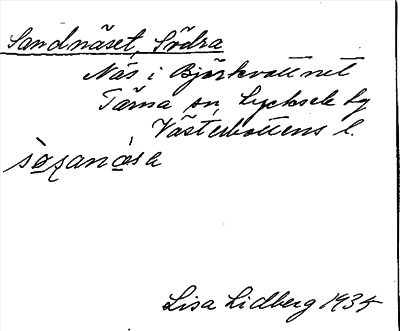 Sandnäset, Södra
Näs i Björkvattnet
Tärna sn, Lycksele lg
Västerbottens l.
Lisa Lidberg 1934